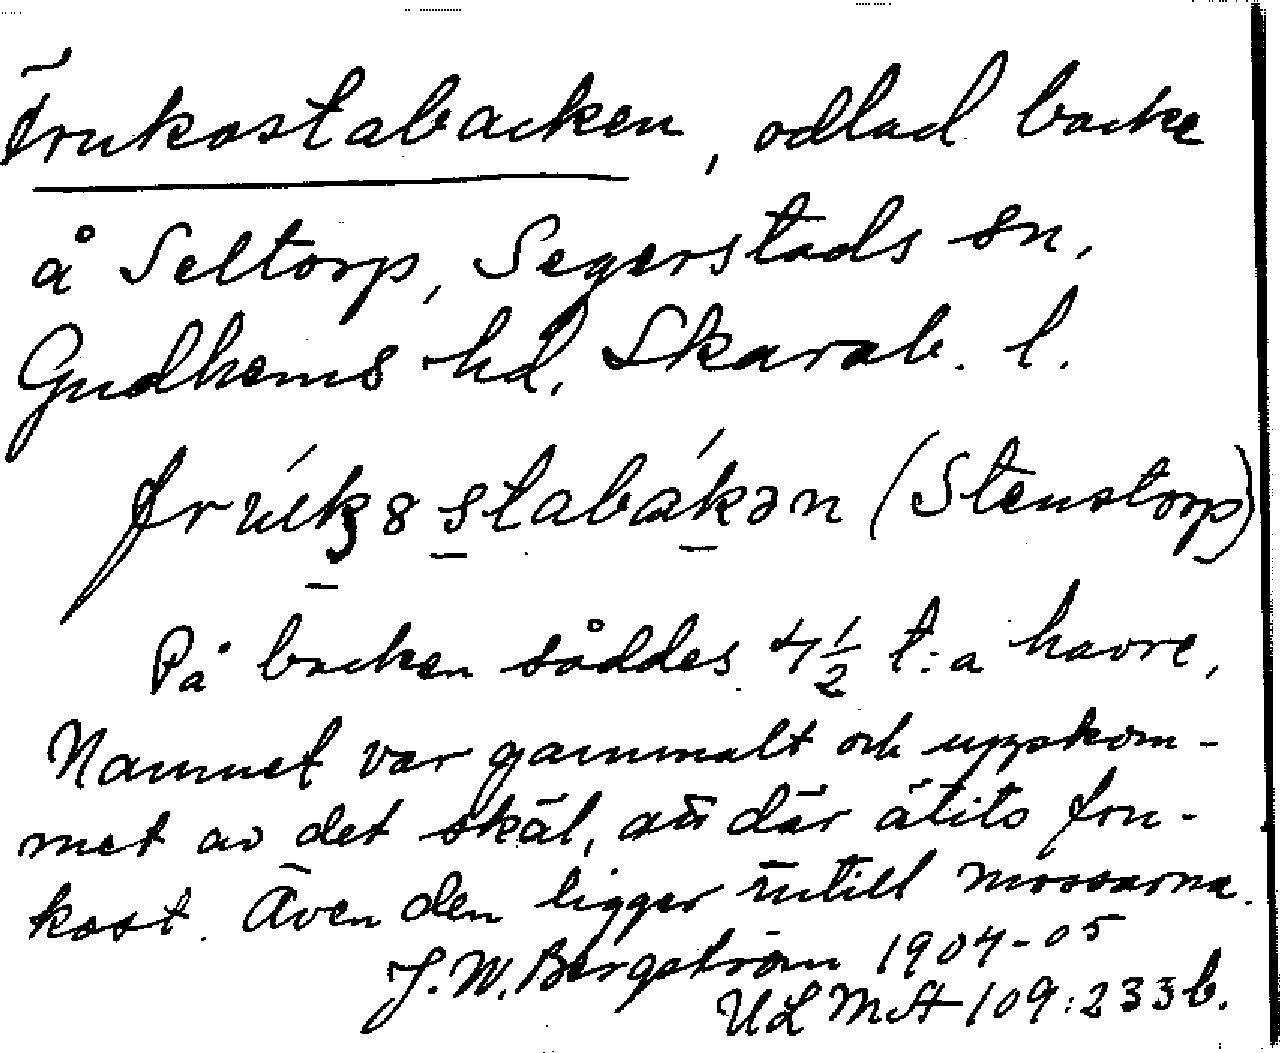 Frukostabacken, odlad backe
å Seltorp, Segerstads sn,
Gudhems hd, Skarab. l.
(Stenstorp)
På backen såddes 4 1/2 t:a havre,
Namnet var gammalt och uppskom-
met av det skäl, att där ätits fru-
kost. Även den ligger intill mossarna.
J. W. Bergström 1904-05
ULMA 109:233b.